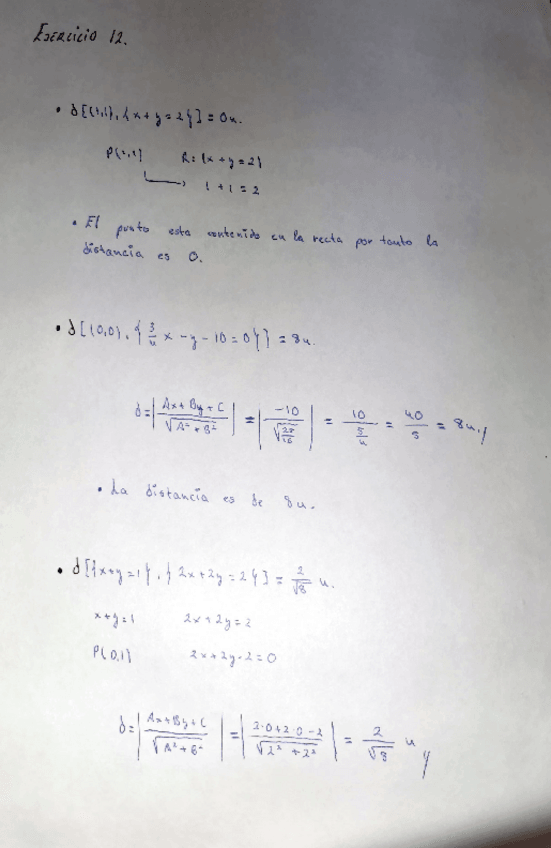 Ejercicio 12.
• d[(1,1), {x+y=2}] = 0u.
P(1,1) R: {x+y=2}
1+1=2
• El punto esta contenido en la recta por tanto la
distancia es 0.
• d[(0,0), {3/4 x - y - 10 = 0}] = 8u.
d = |Ax + By + C / √A² + B²| = |-10 / √25/16| = 10 / 5/4 = 40/5 = 8u.
• La distancia es de 8u.
• d[{x+y=1}, {2x+2y=2}] = 2/√8 u.
x+y=1 2x+2y=2
P(0,1) 2x+2y-2=0
d = |Ax+By+C / √A²+B²| = |2·0+2·0-2 / √2²+2²| = 2/√8 u